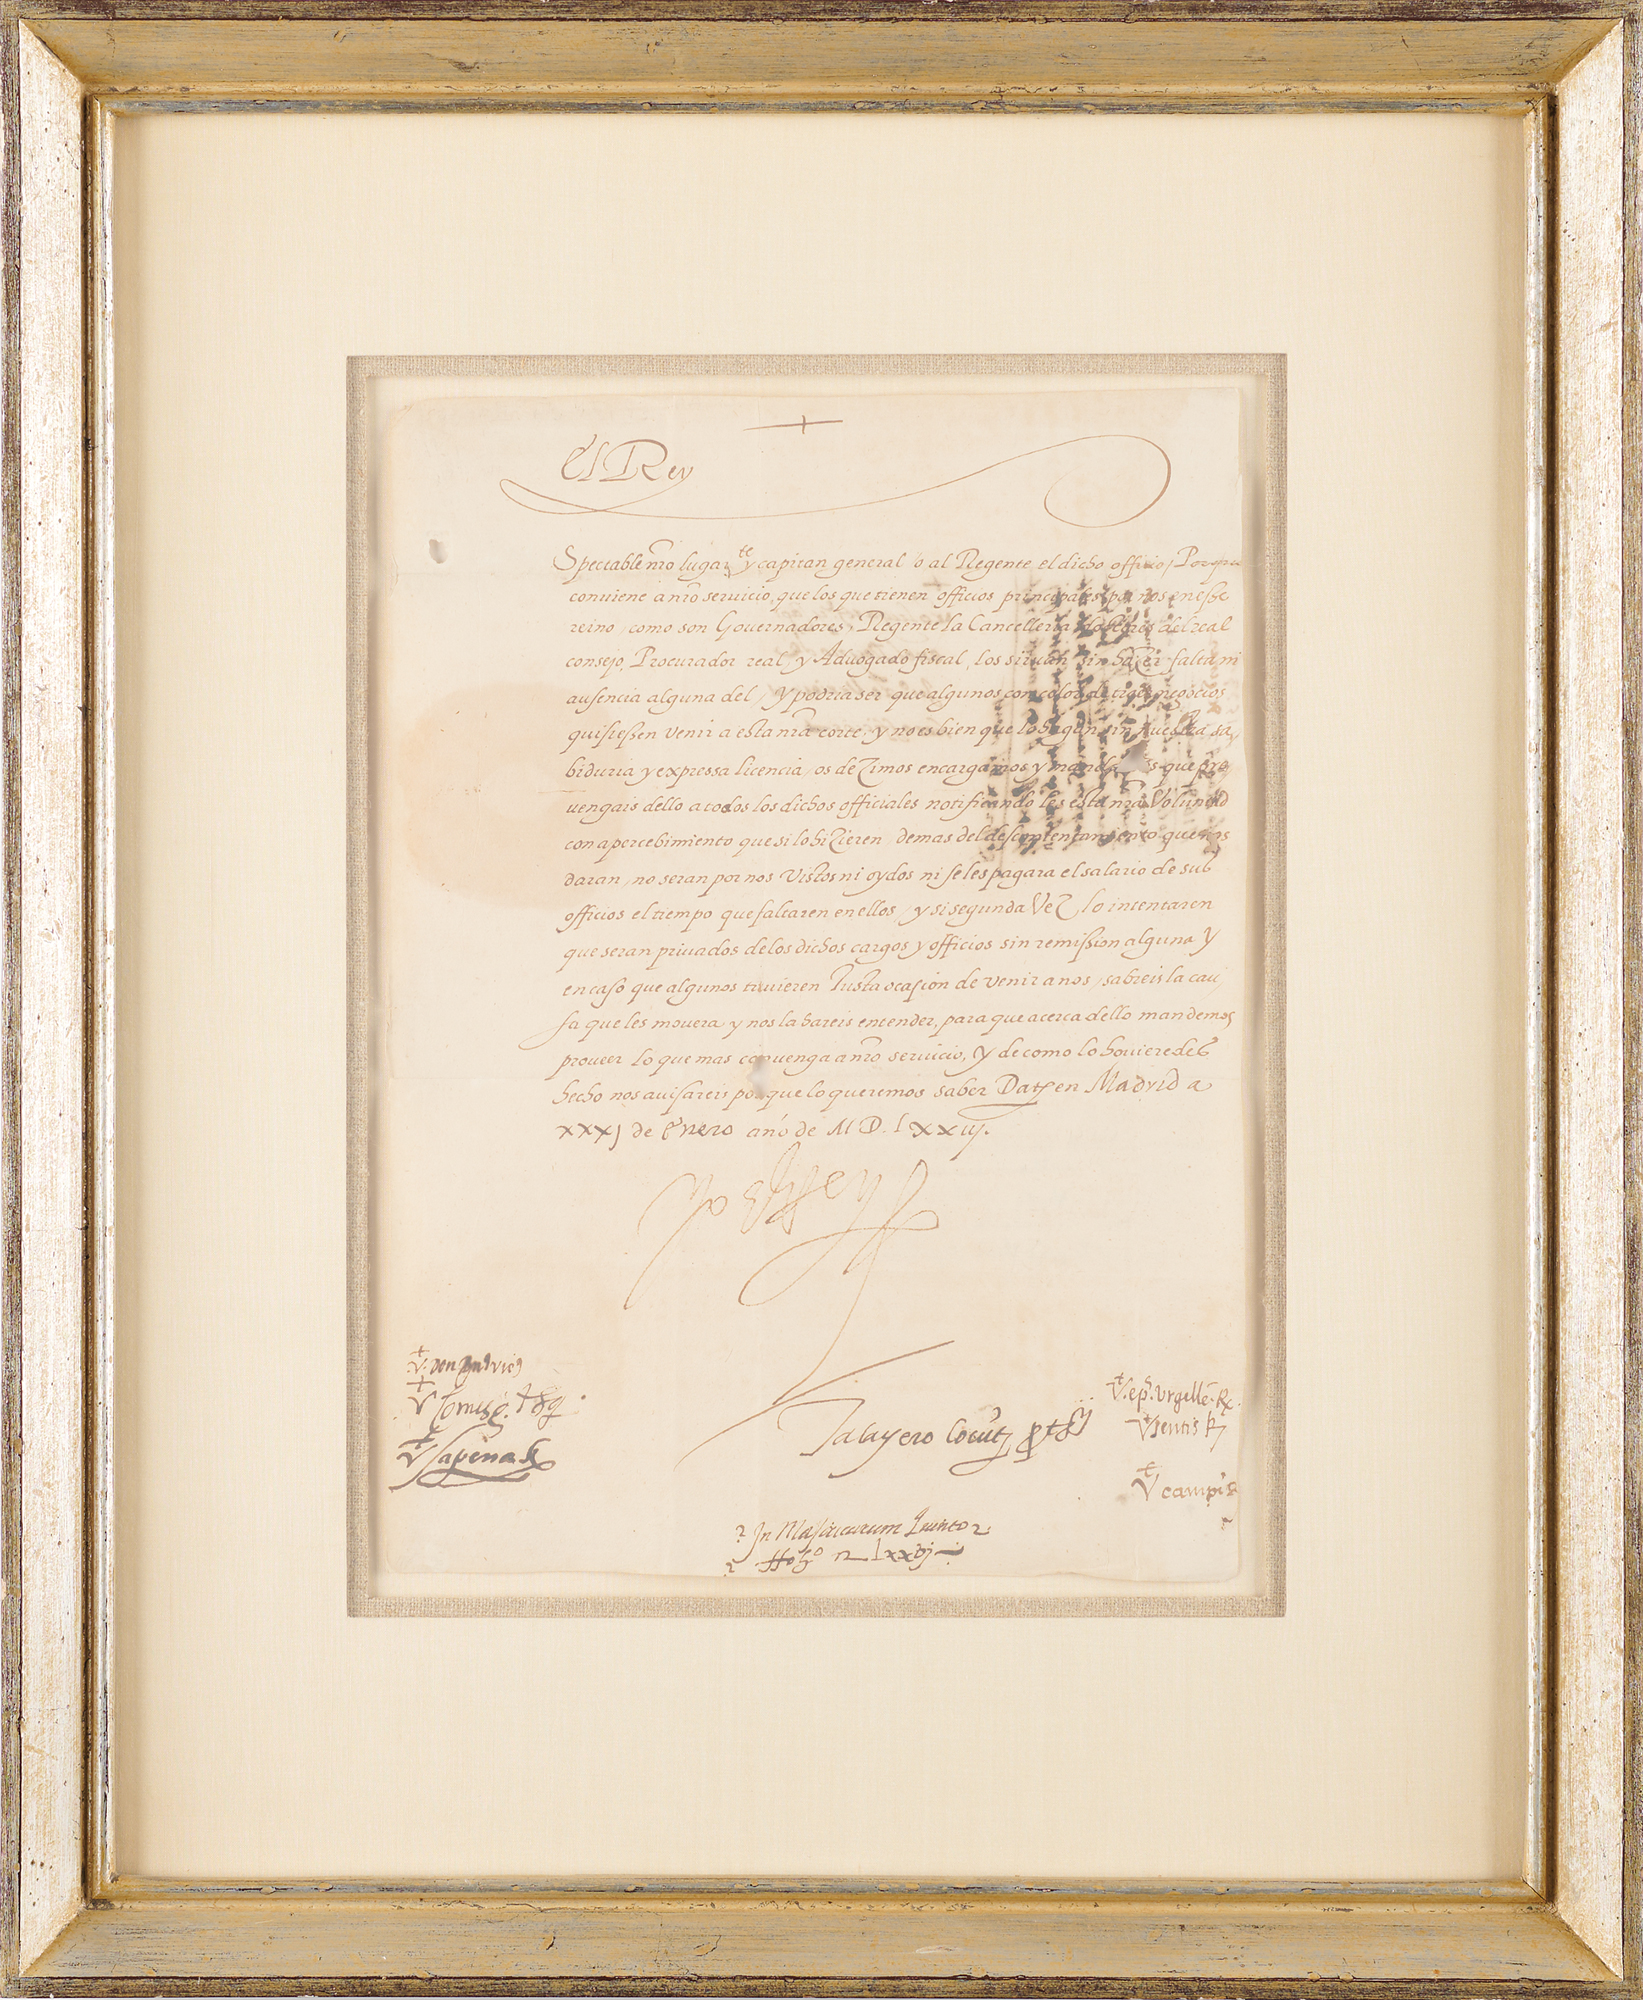 El Rey
Spectable nro lugarte y capitan general o al Regente el dicho officio, Porque
conviene a nro servicio, que los que tienen officios principales por nos en esse
reino, como son Gouernadores, Regente la Cancelleria, doctores del real
consejo, Procurador real, y Aduogado fiscal, los siruan sin hazer falta ni
ausencia alguna del, y podria ser que algunos con color de negocios
quisiessen venir a esta nra corte, y no es bien que lo hagan sin nuestra sa,
biduria y expressa licencia, os dezimos encargamos y mandamos que pre
uengais dello a todos los dichos officiales notificando les esta nra Voluntad
con apercebimiento que si lo hizieren demas del descontentamiento que nos
daran, no seran por nos Vistos ni oydos ni se les pagara el salario de sus
officios el tiempo que faltaren en ellos, y si segunda Vez lo intentaren
que seran priuados de los dichos cargos y officios sin remission alguna y
en caso que algunos tuuieren Justa ocasion de venir a nos, sabreis la cau,
sa que les mouera y nos la hareis entender, para que acerca dello mandemos
proueer lo que mas conuenga a nro seruicio, y de como lo houieredes
hecho nos auisareis porque lo queremos saber Dat en Madrid a
xxxj de Enero año de M D. Lxxiij.
Yo el Rey
V. don
V Comes g.
V Sapena
Talayero Locut
V. ep. Vrgellen. R.
V sentis R
V campi
In Majoricarum quinto
ffo lxxvj